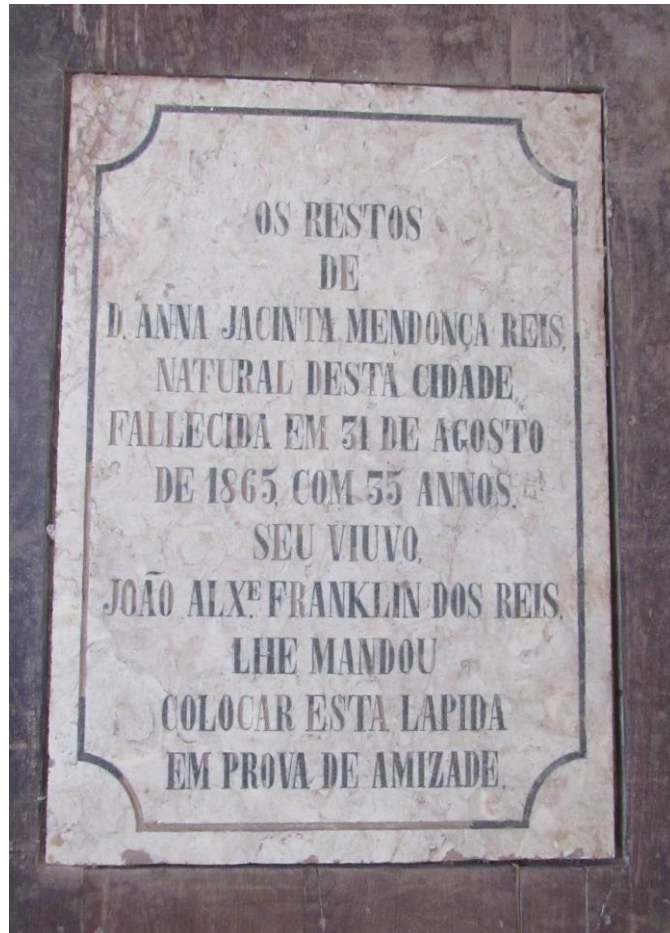 OS RESTOS
DE
D. ANNA JACINTA MENDONÇA REIS,
NATURAL DESTA CIDADE,
FALLECIDA EM 31 DE AGOSTO
DE 1865, COM 35 ANNOS.
SEU VIUVO,
JOÃO ALX.ᴱ FRANKLIN DOS REIS,
LHE MANDOU
COLOCAR ESTA LAPIDA
EM PROVA DE AMIZADE.